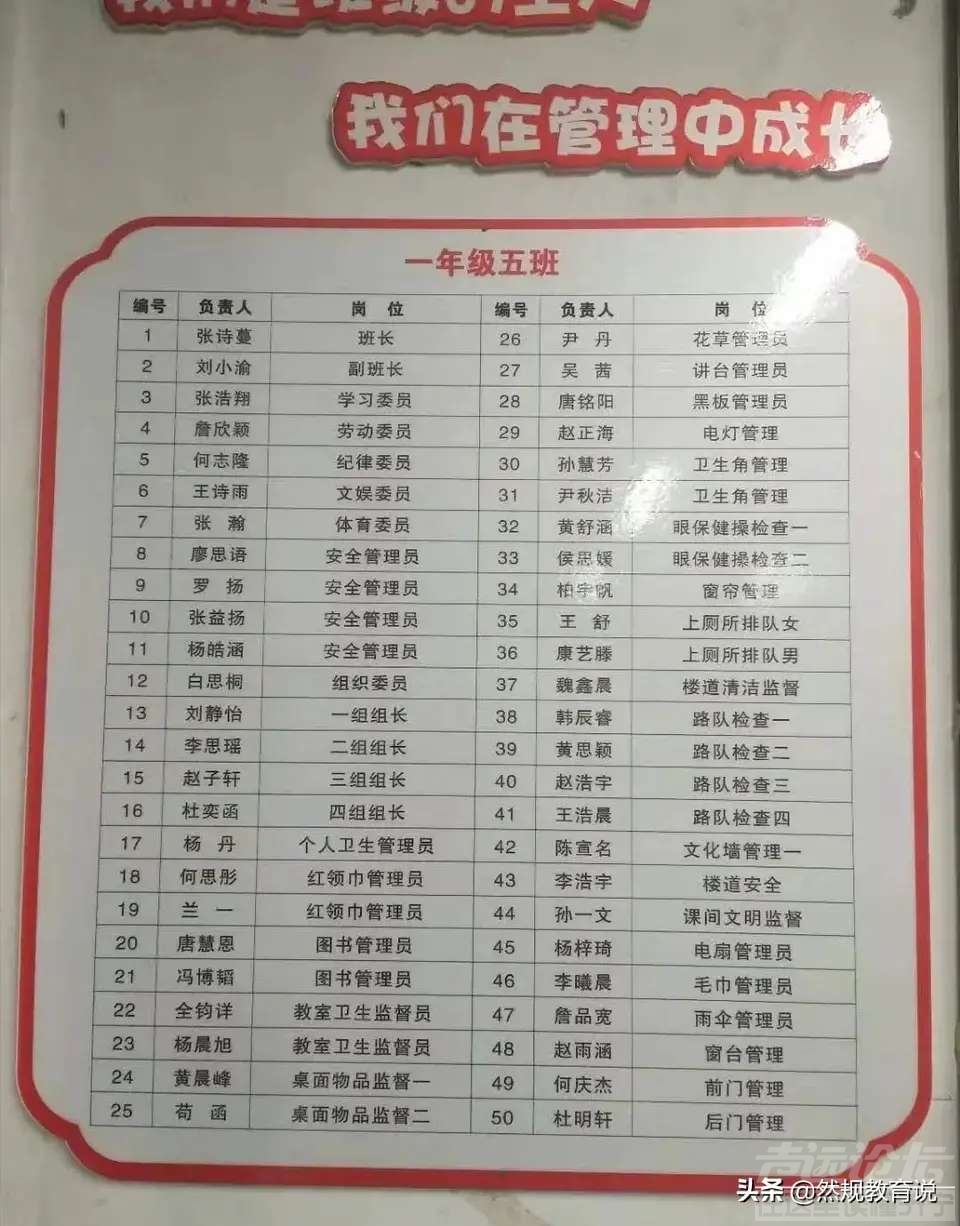 我们是班级的主人
我们在管理中成长
一年级五班
编号 负责人 岗 位 编号 负责人 岗 位
1 张诗蔓 班长 26 尹 丹 花草管理员
2 刘小渝 副班长 27 吴 茜 讲台管理员
3 张浩翔 学习委员 28 唐铭阳 黑板管理员
4 詹欣颖 劳动委员 29 赵正海 电灯管理
5 何志隆 纪律委员 30 孙慧芳 卫生角管理
6 王诗雨 文娱委员 31 尹秋洁 卫生角管理
7 张 瀚 体育委员 32 黄舒涵 眼保健操检查一
8 廖思语 安全管理员 33 侯思媛 眼保健操检查二
9 罗 扬 安全管理员 34 柏宇帆 窗帘管理
10 张益扬 安全管理员 35 王 舒 上厕所排队女
11 杨皓涵 安全管理员 36 康艺滕 上厕所排队男
12 白思桐 组织委员 37 魏鑫晨 楼道清洁监督
13 刘静怡 一组组长 38 韩辰睿 路队检查一
14 李思瑶 二组组长 39 黄思颖 路队检查二
15 赵子轩 三组组长 40 赵浩宇 路队检查三
16 杜奕函 四组组长 41 王浩晨 路队检查四
17 杨 丹 个人卫生管理员 42 陈宣名 文化墙管理一
18 何思彤 红领巾管理员 43 李浩宇 楼道安全
19 兰 一 红领巾管理员 44 孙一文 课间文明监督
20 唐慧恩 图书管理员 45 杨梓琦 电扇管理员
21 冯博韬 图书管理员 46 李曦晨 毛巾管理员
22 全钧详 教室卫生监督员 47 詹品宽 雨伞管理员
23 杨晨旭 教室卫生监督员 48 赵雨涵 窗台管理
24 黄晨峰 桌面物品监督一 49 何庆杰 前门管理
25 苟 函 桌面物品监督二 50 杜明轩 后门管理
头条 @然规教育说